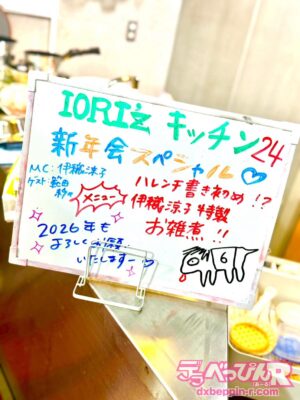 IORI'z キッチン24
新年会スペシャル♡
MC:伊織涼子
ゲスト:藍田
メニュー
ハレンチ書き初め!?
伊織涼子特製
お雑煮!!
2026年も
よろしくお願い
いたしますー
デラべっぴんR
dxbeppin-r.com